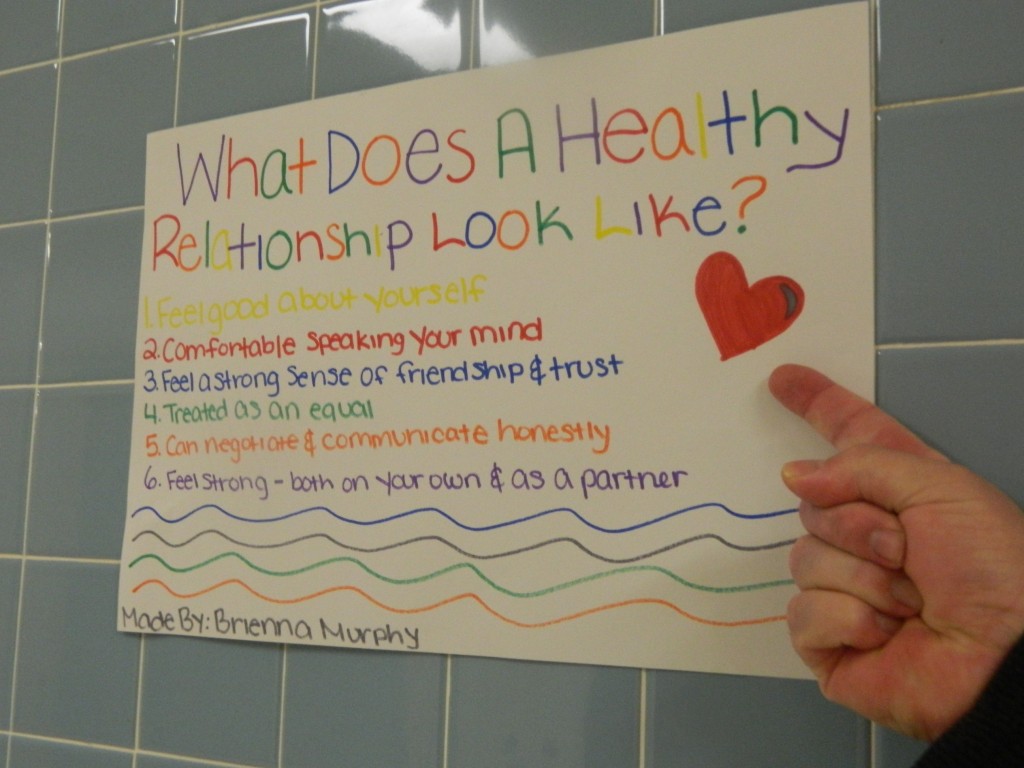 What Does A Healthy
Relationship Look Like?
1. Feel good about yourself
2. Comfortable speaking your mind
3. Feel a strong sense of friendship & trust
4. Treated as an equal
5. Can negotiate & communicate honestly
6. Feel strong - both on your own & as a partner
Made By: Brienna Murphy